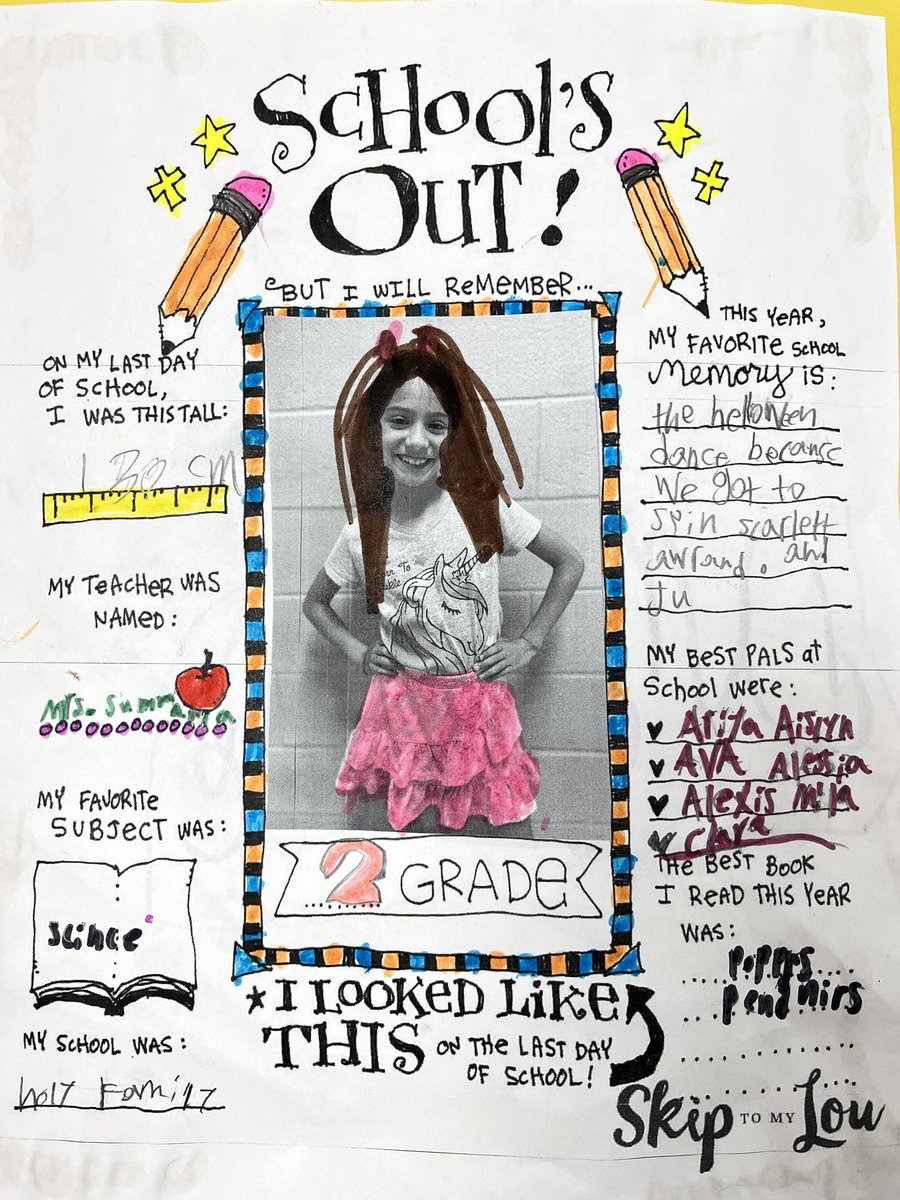 SCHOOL'S
OUT!
BUT I WILL REMEMBER...
ON MY LAST DAY
OF SCHOOL,
I WAS THIS TALL:
cm
MY TEACHER WAS
NAMED:
Mrs.
MY FAVORITE
SUBJECT WAS:
scince
MY SCHOOL WAS:
holy Family
2 GRADE
I LOOKED LIKE
THIS ON THE LAST DAY
OF SCHOOL!
THIS YEAR,
MY FAVORITE SCHOOL
MEMORY IS:
the helloween
dance because
We got to
spin scarlett
awrand. and
Ju
MY BEST PALS at
SCHOOL WERE:
Ariya Aislyn
AVA Alessia
Alexis Mila
Clara
THE BEST BOOK
I READ THIS YEAR
WAS:
popprs
pengnirs
Skip TO MY Lou